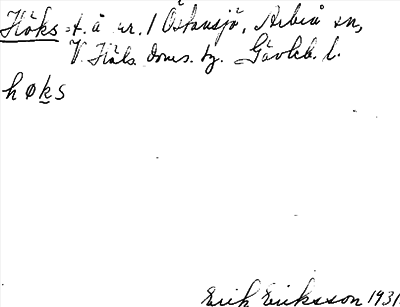 Höks: t. å nr. 1 Östansjö, Arbrå sn,
V. Häls. doms. hg. Gävleb. l.
høks
Erik Eriksson 1931